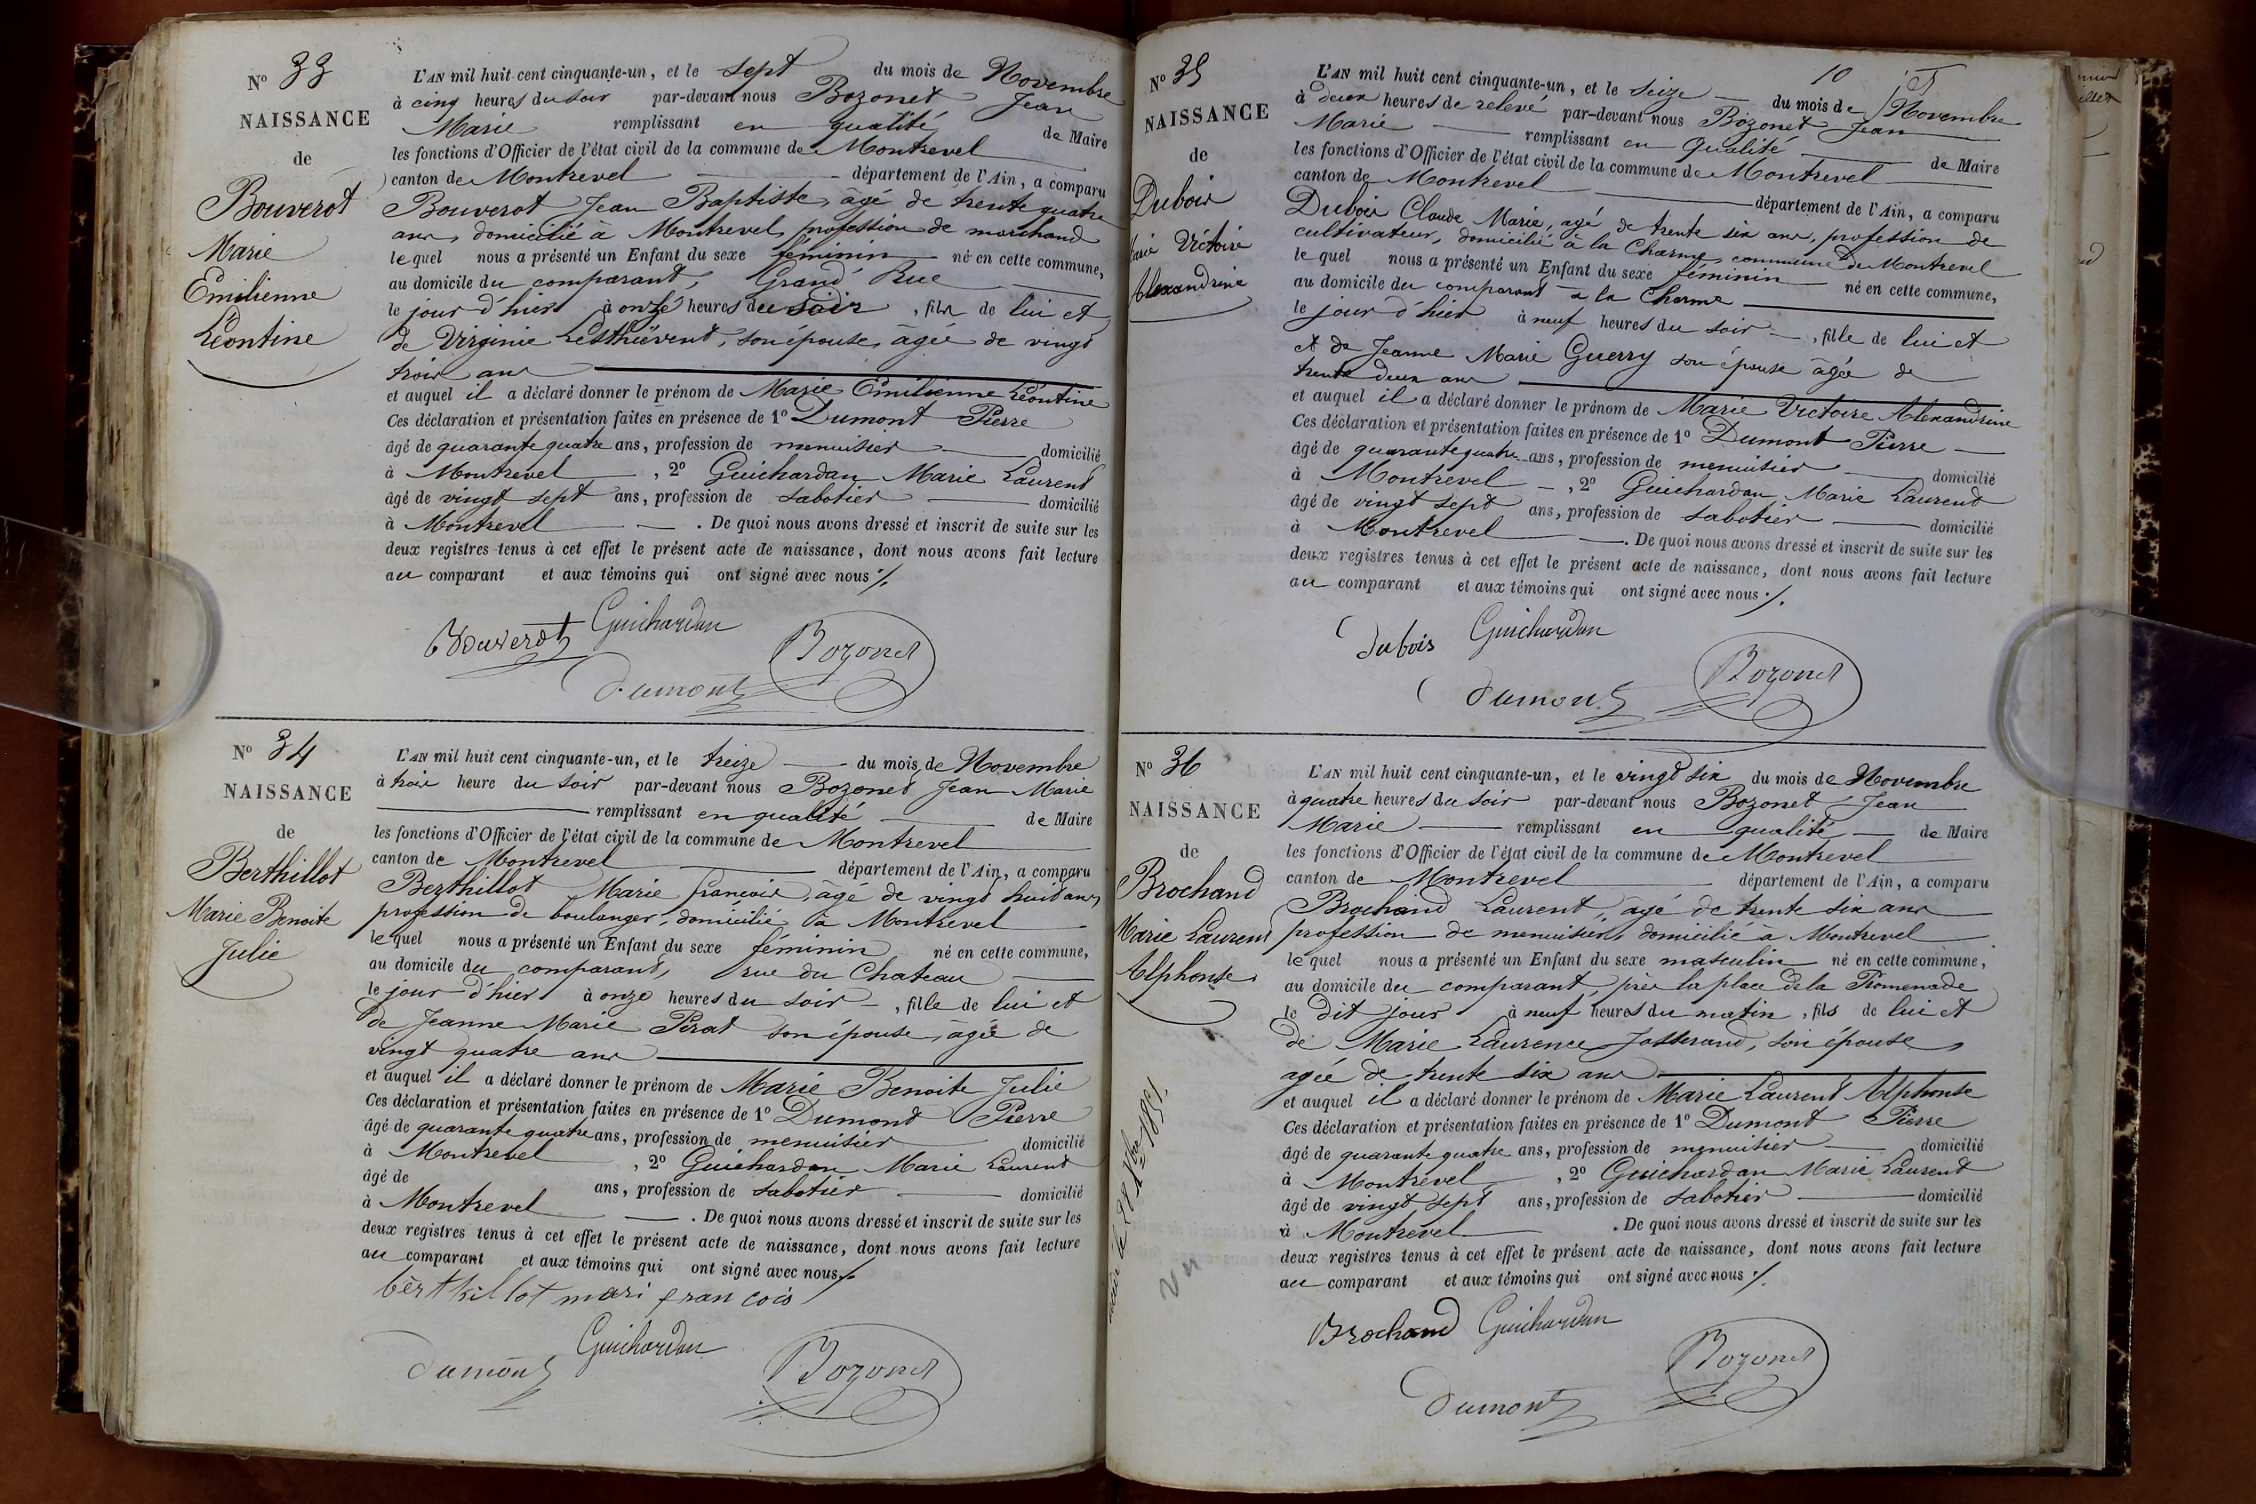 No 33
NAISSANCE
de
Bouverot
Marie
Emilienne
Léontine
L'AN mil huit cent cinquante-un, et le sept du mois de Novembre
à cinq heures du soir par-devant nous Bozonet Jean
Marie remplissant en qualité de Maire
les fonctions d'Officier de l'état civil de la commune de Montrevel
canton de Montrevel département de l'Ain, a comparu
Bouverot Jean Baptiste, âgé de trente quatre
ans, domicilié à Montrevel, profession de marchand
lequel nous a présenté un Enfant du sexe féminin né en cette commune,
au domicile du comparant, Grande Rue
le jour d'hier à onze heures du soir, fille de lui et
de Virginie Lesthiévent, son épouse, âgée de vingt
trois ans
et auquel il a déclaré donner le prénom de Marie Emilienne Léontine
Ces déclaration et présentation faites en présence de 1º Dumont Pierre
âgé de quarante quatre ans, profession de menuisier domicilié
à Montrevel, 2º Guichardan Marie Laurent
âgé de vingt sept ans, profession de sabotier domicilié
à Montrevel. De quoi nous avons dressé et inscrit de suite sur les
deux registres tenus à cet effet le présent acte de naissance, dont nous avons fait lecture
au comparant et aux témoins qui ont signé avec nous ./.
Bouverot Guichardan
Dumont Bozonet
No 34
NAISSANCE
de
Berthillot
Marie Benoite
Julie
L'AN mil huit cent cinquante-un, et le treize du mois de Novembre
à trois heure du soir par-devant nous Bozonet Jean Marie
remplissant en qualité de Maire
les fonctions d'Officier de l'état civil de la commune de Montrevel
canton de Montrevel département de l'Ain, a comparu
Berthillot Marie françois, âgé de vingt huit ans,
profession de boulanger, domicilié à Montrevel
lequel nous a présenté un Enfant du sexe féminin né en cette commune,
au domicile du comparant, rue du Chateau
le jour d'hier à onze heures du soir, fille de lui et
de Jeanne Marie Pirat son épouse, agée de
vingt quatre ans
et auquel il a déclaré donner le prénom de Marie Benoite Julie
Ces déclaration et présentation faites en présence de 1º Dumont Pierre
âgé de quarante quatre ans, profession de menuisier domicilié
à Montrevel, 2º Guichardan Marie Laurent
âgé de ans, profession de sabotier domicilié
à Montrevel. De quoi nous avons dressé et inscrit de suite sur les
deux registres tenus à cet effet le présent acte de naissance, dont nous avons fait lecture
au comparant et aux témoins qui ont signé avec nous ./.
bèrthillot mari françois
Guichardan
Dumont Bozonet
10
No 35
NAISSANCE
de
Dubois
Marie Victoire
Alexandrine
L'AN mil huit cent cinquante-un, et le seize du mois de Novembre
à deux heures de relevé par-devant nous Bozonet Jean
Marie remplissant en qualité de Maire
les fonctions d'Officier de l'état civil de la commune de Montrevel
canton de Montrevel département de l'Ain, a comparu
Dubois Claude Marie, agé de trente six ans, profession de
cultivateur, domicilié à la Charme, commune de Montrevel
lequel nous a présenté un Enfant du sexe féminin né en cette commune,
au domicile du comparant à la Charme
le jour d'hier à neuf heures du soir, fille de lui et
et de Jeanne Marie Guerry son épouse âgée de
trente deux ans
et auquel il a déclaré donner le prénom de Marie Victoire Alexandrine
Ces déclaration et présentation faites en présence de 1º Dumont Pierre
âgé de quarante quatre ans, profession de menuisier domicilié
à Montrevel, 2º Guichardan Marie Laurent
âgé de vingt sept ans, profession de sabotier domicilié
à Montrevel. De quoi nous avons dressé et inscrit de suite sur les
deux registres tenus à cet effet le présent acte de naissance, dont nous avons fait lecture
au comparant et aux témoins qui ont signé avec nous ./.
dubois Guichardan
Dumont Bozonet
No 36
NAISSANCE
de
Brochand
Marie Laurent
Alphonse
Vu
L'AN mil huit cent cinquante-un, et le vingt six du mois de Novembre
à quatre heures du soir par-devant nous Bozonet Jean
Marie remplissant en qualité de Maire
les fonctions d'Officier de l'état civil de la commune de Montrevel
canton de Montrevel département de l'Ain, a comparu
Brochand Laurent, âgé de trente six ans
profession de menuisier, domicilié à Montrevel
lequel nous a présenté un Enfant du sexe masculin né en cette commune,
au domicile du comparant, près la place de la Promenade
le dit jour à neuf heures du matin, fils de lui et
de Marie Laurence Josserand, son épouse
agée de trente six ans
et auquel il a déclaré donner le prénom de Marie Laurent Alphonse
Ces déclaration et présentation faites en présence de 1º Dumont Pierre
âgé de quarante quatre ans, profession de menuisier domicilié
à Montrevel, 2º Guichardan Marie Laurent
âgé de vingt sept ans, profession de sabotier domicilié
à Montrevel. De quoi nous avons dressé et inscrit de suite sur les
deux registres tenus à cet effet le présent acte de naissance, dont nous avons fait lecture
au comparant et aux témoins qui ont signé avec nous ./.
Brochand Guichardan
Dumont Bozonet